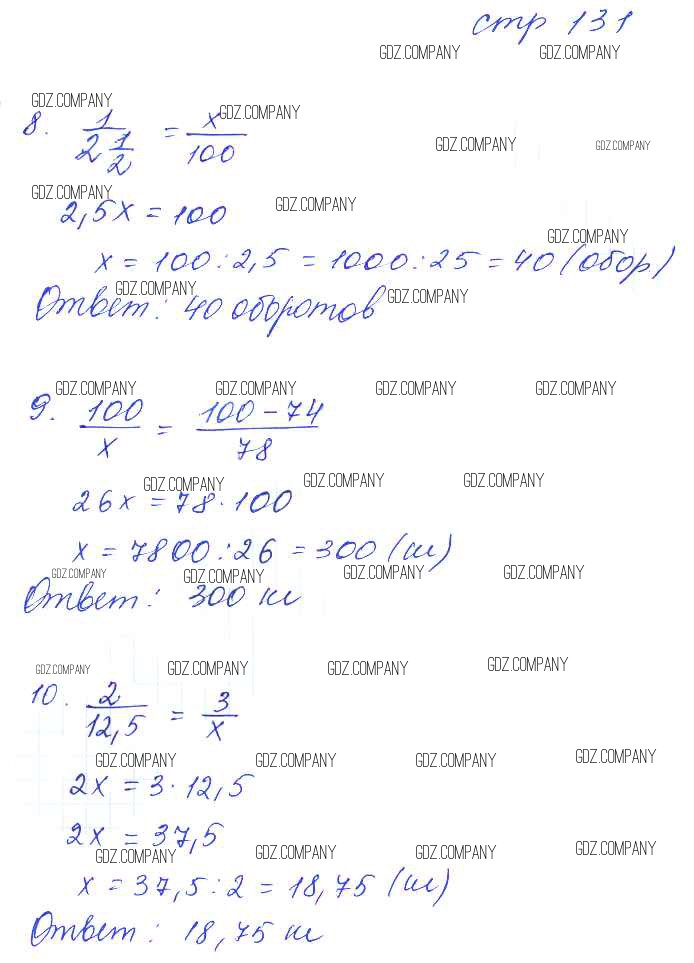 стр 131
GDZ.COMPANY GDZ.COMPANY
GDZ.COMPANY GDZ.COMPANY
8. 1/(2 1/2) = x/100
GDZ.COMPANY GDZ.COMPANY
GDZ.COMPANY GDZ.COMPANY
2,5x = 100
GDZ.COMPANY
x = 100 : 2,5 = 1000 : 25 = 40 (обор)
GDZ.COMPANY GDZ.COMPANY
Ответ: 40 оборотов
GDZ.COMPANY GDZ.COMPANY GDZ.COMPANY GDZ.COMPANY
9. 100/x = (100 - 74)/78
GDZ.COMPANY GDZ.COMPANY GDZ.COMPANY
26x = 78 · 100
x = 7800 : 26 = 300 (км)
GDZ.COMPANY GDZ.COMPANY GDZ.COMPANY GDZ.COMPANY
Ответ: 300 км
GDZ.COMPANY GDZ.COMPANY GDZ.COMPANY GDZ.COMPANY
10. 2/12,5 = 3/x
GDZ.COMPANY GDZ.COMPANY GDZ.COMPANY GDZ.COMPANY
2x = 3 · 12,5
2x = 37,5
GDZ.COMPANY GDZ.COMPANY GDZ.COMPANY GDZ.COMPANY
x = 37,5 : 2 = 18,75 (км)
Ответ: 18,75 км